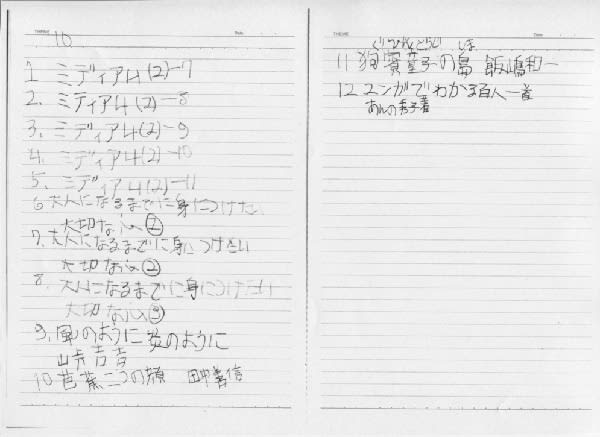 THEME Date
10
1 ミディア4(2)-7
2. ミディア4(2)-8
3. ミディア4(2)-9
4. ミディア4(2)-10
5. ミディア4(2)-11
6 大人になるまでに身につけたい
大切な心①
7. 大人になるまでに身につけたい
大切な心②
8. 大人になるまでに身につけたい
大切な心③
9. 風のように炎のように
山
10 芭蕉二つの顔 田中善信
THEME Date
ぐひんどうじ しま
11 狗賓童子の島 飯嶋和一
12 マンガでわかる百人一首
あんの秀子著